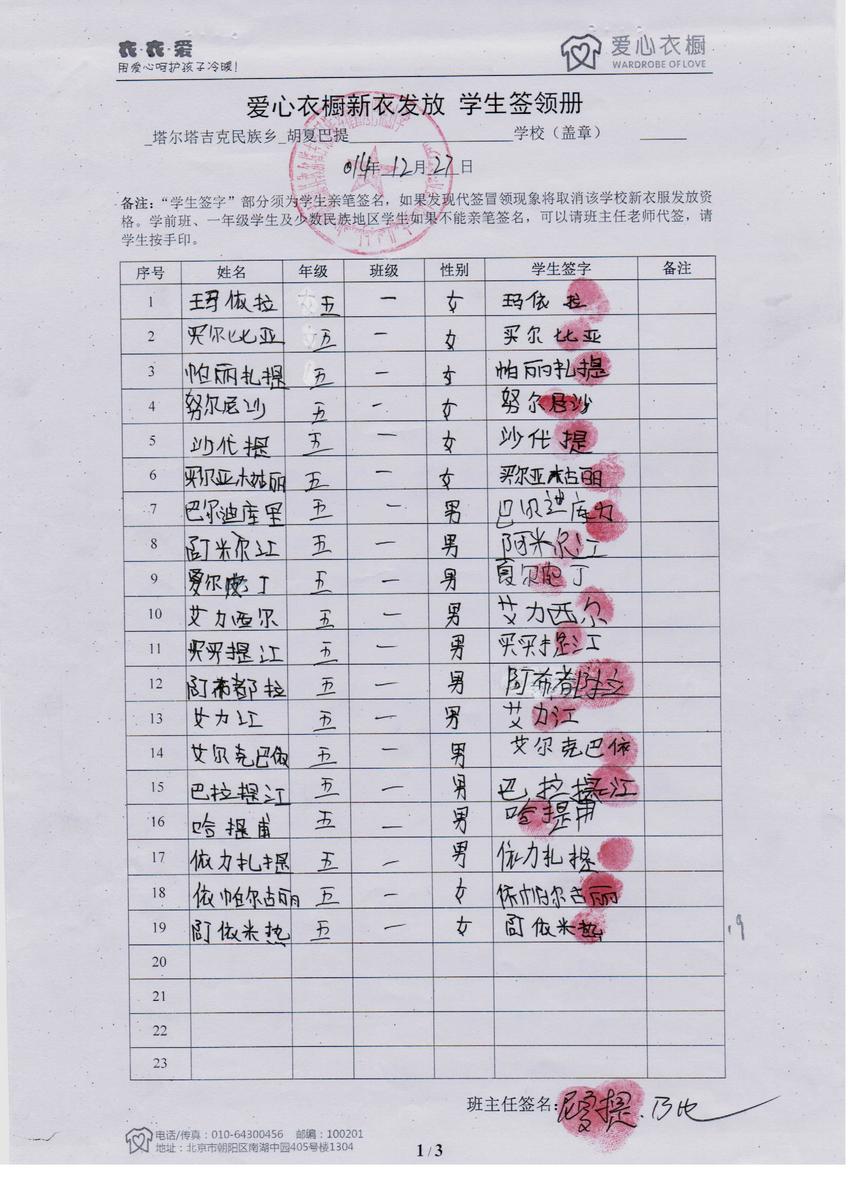 衣·衣·爱
用爱心呵护孩子冷暖!
爱心衣橱
WARDROBE OF LOVE
爱心衣橱新衣发放 学生签领册
_塔尔塔吉克民族乡_胡夏巴提 学校（盖章）
014年 12月 27日
备注：“学生签字”部分须为学生亲笔签名，如果发现代签冒领现象将取消该学校新衣服发放资
格。学前班、一年级学生及少数民族地区学生如果不能亲笔签名，可以请班主任老师代签，请
学生按手印。
序号 姓名 年级 班级 性别 学生签字 备注
1 玛依拉 五 一 女 玛依拉
2 买尔比亚 五 一 女 买尔比亚
3 帕丽扎提 五 一 女 帕丽扎提
4 努尔尼沙 五 一 女 努尔尼沙
5 沙代提 五 一 女 沙代提
6 买尔亚木古丽 五 一 女 买尔亚木古丽
7 巴尔迪库里 五 一 男 巴尔迪库力
8 阿米尔江 五 一 男 阿米尔江
9 夏尔 丁 五 一 男 夏尔 丁
10 艾力西尔 五 一 男 艾力西尔
11 买买提江 五 一 男 买买提江
12 阿布都拉 五 一 男 阿布都拉
13 艾力江 五 一 男 艾力江
14 艾尔克巴依 五 一 男 艾尔克巴依
15 巴拉提江 五 一 男 巴拉提江
16 哈提甫 五 一 男 哈提甫
17 依力扎提 五 一 男 依力扎提
18 依帕尔古丽 五 一 女 依帕尔古丽
19 阿依米热 五 一 女 阿依米热
19
20
21
22
23
班主任签名:
电话/传真：010-64300456 邮编：100201
地址：北京市朝阳区南湖中园405号楼1304
1 / 3